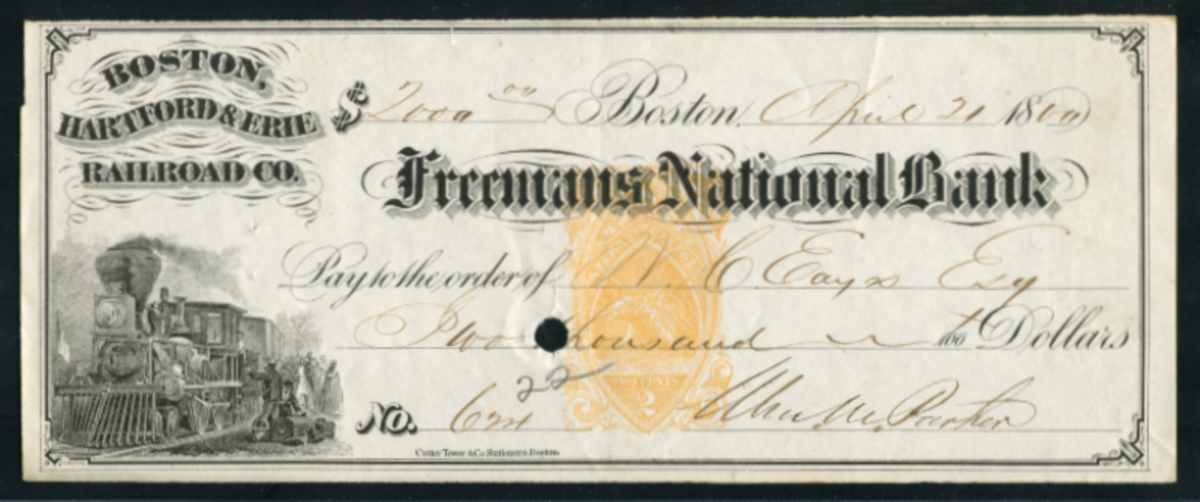 BOSTON,
HARTFORD & ERIE
RAILROAD CO.
$ 2000 00 Boston, April 21 18
Freemans National Bank
Pay to the order of W. C. Eayrs Esq
Two thousand 100 Dollars
22
No. 624 Parker
TWO CENTS
2
Cutter Tower & Co. Stationers Boston.